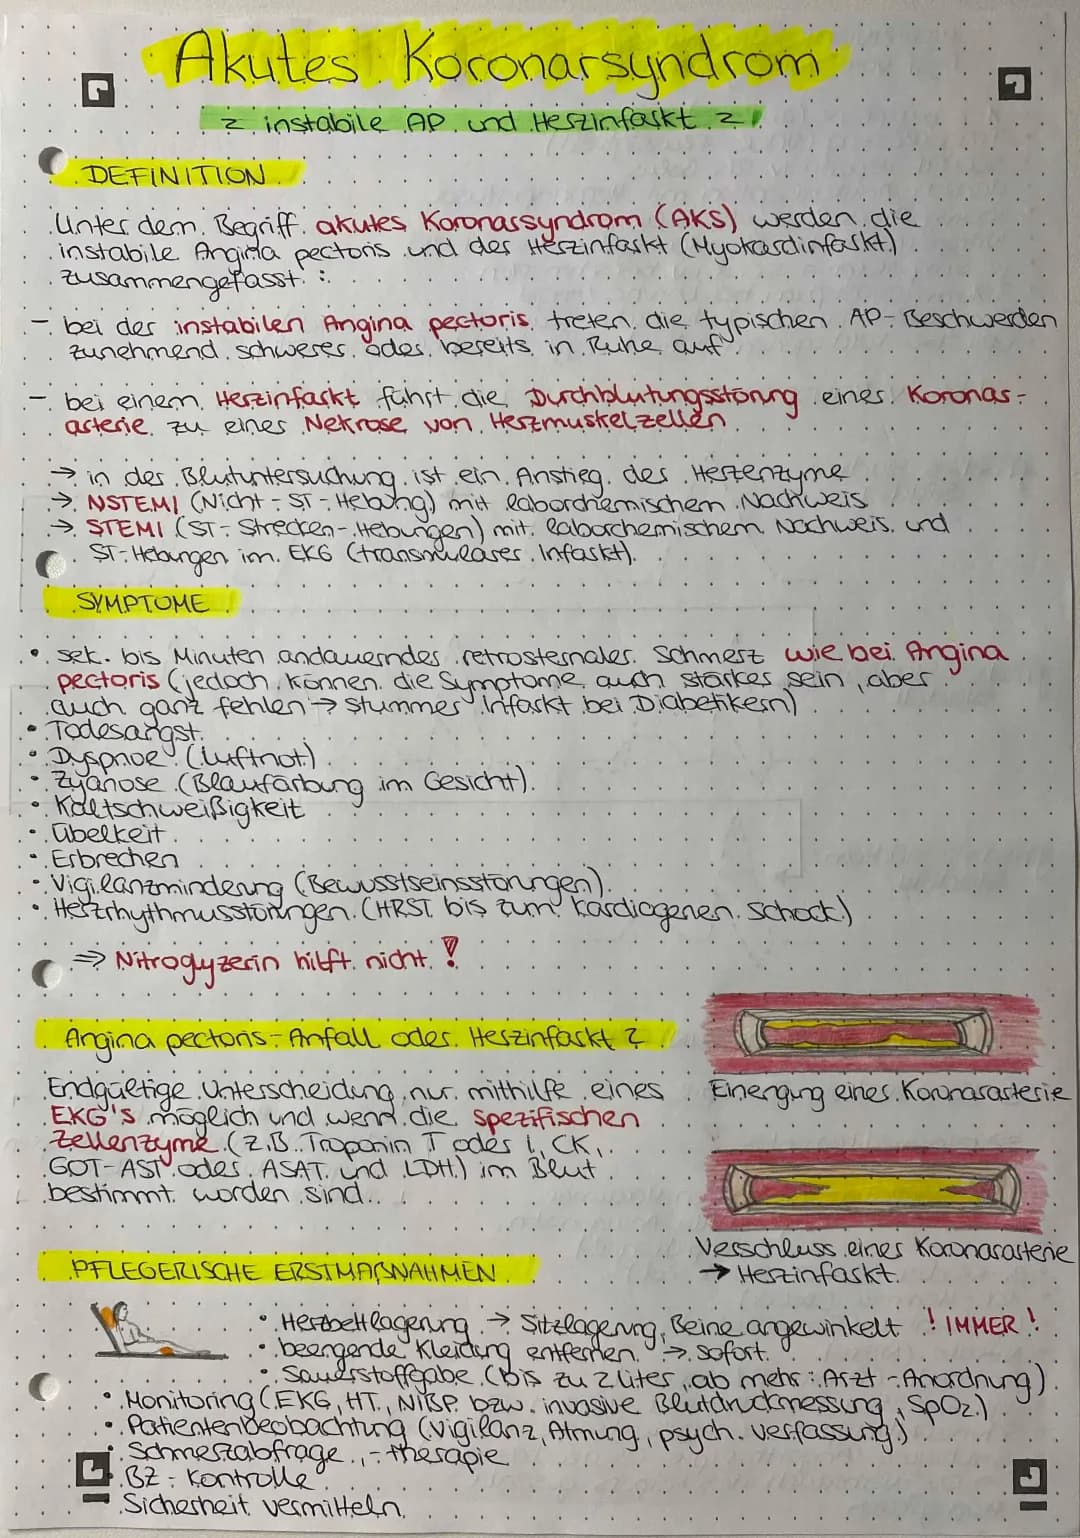 Akutes Koronarsyndrom
~ instabile AP und Herzinfarkt ~
DEFINITION
Unter dem Begriff akutes Koronarsyndrom (AKS) werden die
instabile Angina pectoris und der Herzinfarkt (Myokardinfarkt)
zusammengefasst :
- bei der instabilen Angina pectoris treten die typischen AP-Beschwerden
zunehmend schwerer oder bereits in Ruhe auf
- bei einem Herzinfarkt führt die Durchblutungsstörung einer Koronar-
arterie zu einer Nekrose von Herzmuskelzellen
→ in der Blutuntersuchung ist ein Anstieg der Herzenzyme
→ NSTEMI (Nicht-ST-Hebung) mit laborchemischem Nachweis
→ STEMI (ST-Strecken-Hebungen) mit laborchemischem Nachweis und
ST-Hebungen im EKG (transmuraler Infarkt).
SYMPTOME
• sek. bis Minuten andauerndes retrosternaler Schmerz wie bei Angina
pectoris (jedoch können die Symptome auch stärker sein, aber
auch ganz fehlen → stummer Infarkt bei Diabetikern)
• Todesangst
• Dyspnoe (Luftnot)
• Zyanose (Blaufärbung im Gesicht)
• Kaltschweißigkeit
• Übelkeit
• Erbrechen
• Vigilanzminderung (Bewusstseinsstörungen)
• Herzrhythmusstörungen (HRST bis zum kardiogenen Schock)
⇒ Nitroglyzerin hilft nicht !
Angina pectoris-Anfall oder Herzinfarkt ?
Endgültige Unterscheidung nur mithilfe eines
EKG's möglich und wenn die spezifischen
Zellenzyme (z.B. Troponin T oder I, CK,
GOT-AST oder ASAT und LDH) im Blut
bestimmt worden sind.
Einergung einer Koronararterie
Verschluss einer Koronararterie
→ Herzinfarkt
PFLEGERISCHE ERSTMAßNAHMEN
• Herzbettlagerung → Sitzlagerung, Beine angewinkelt ! IMMER !
• beengende Kleidung entfernen → sofort
• Sauerstoffgabe (bis zu 2 Liter, ab mehr : Arzt-Anordnung)
• Monitoring (EKG, HT, NIBP bzw. invasive Blutdruckmessung, SpO2)
• Patientenbeobachtung (Vigilanz, Atmung, psych. Verfassung)
• Schmerzabfrage, -therapie
• BZ-Kontrolle
• Sicherheit vermitteln